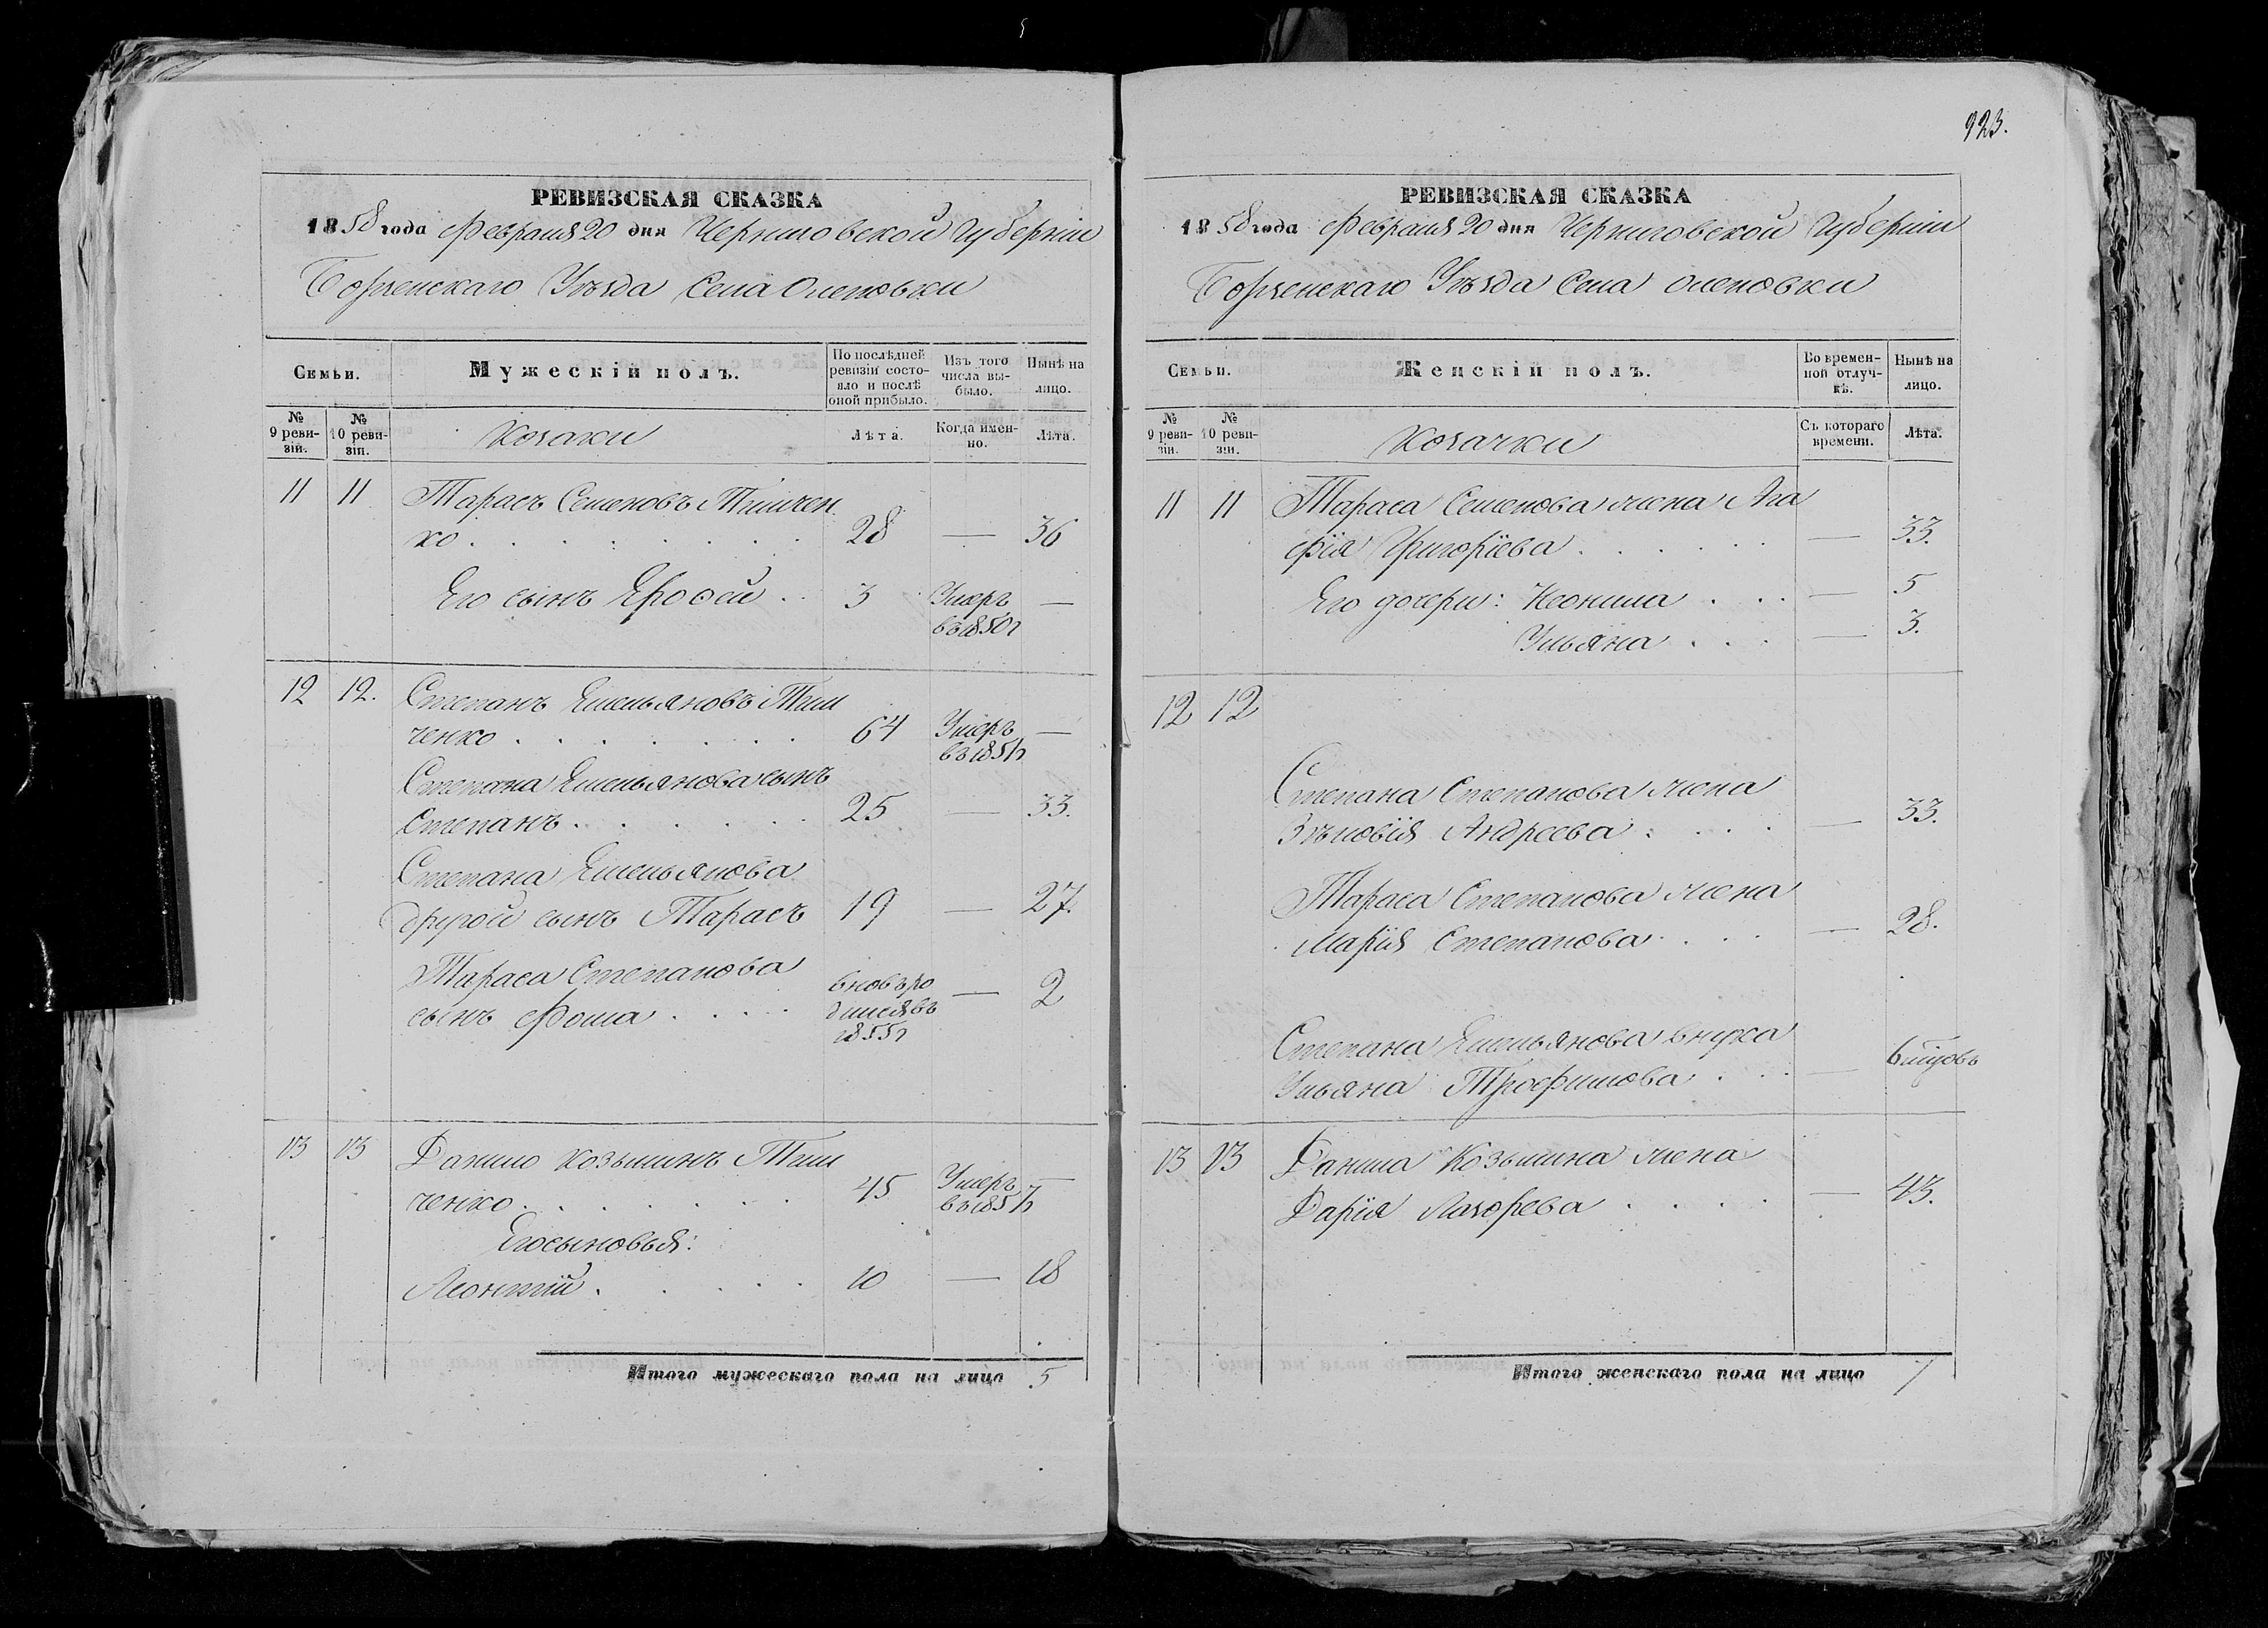 923.
РЕВИЗСКАЯ СКАЗКА
1858 года Февраля 20 дня Черниговской Губерніи
Борзенскаго Уѣзда Села Оленовки
Семьи.
Мужескій полъ.
По послѣдней ревизіи состояло и послѣ оной прибыло.
Изъ того числа выбыло.
Нынѣ на лицо.
№ 9 ревизіи.
№ 10 ревизіи.
Козаки
Лѣта.
Когда именно.
Лѣта.
11 11 Тарасъ Семеновъ Тимчен
ко . . . 28 — 36
Его сынъ Ерофей . . 3 Умеръ —
въ 1850 г
12 12. Степанъ Емельяновъ Тим
ченко . . . 64 Умеръ —
въ 1851 г
Степана Емельянова сынъ
Степанъ . . . 25 — 33.
Степана Емельянова
другой сынъ Тарасъ 19 — 27.
Тараса Степанова вновь ро
сынъ Фома . . . дился въ — 2
1855 г
13 13 Данило Козьминъ Тим
ченко . . . 45 Умеръ —
въ 185
Его сыновья:
Леонтій . . . 10 — 18
Итого мужескаго пола на лицо 5
РЕВИЗСКАЯ СКАЗКА
1858 года Февраля 20 дня Черниговской Губерніи
Борзенскаго Уѣзда Села Оленовки
Семьи.
Женскій полъ.
Во временной отлучкѣ.
Нынѣ на лицо.
№ 9 ревизіи.
№ 10 ревизіи.
Козачки
Съ котораго времени.
Лѣта.
11 11 Тараса Семенова жена Ага
фія Григоріева . . . — 33.
Его дочери: Неонила . . . — 5
Ульяна . . . — 3.
12 12
Степана Степанова жена
Зѣновія Андреева . . . — 33.
Тараса Степанова жена
Марія Степанова . . . — 28.
Степана Емельянова внука
Ульяна Трофимова . . . —
13 13 Данила Козьмина жена
Дарія Лазорева . . . — 43.
Итого женскаго пола на лицо 7